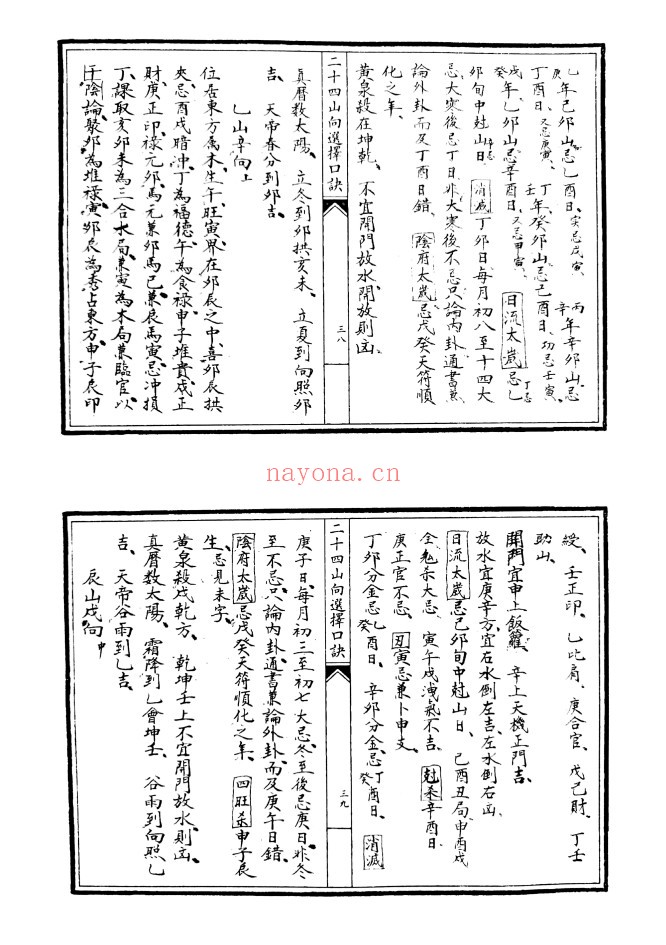 乙年己卯山忌乙酉日、寅忌戊寅、丙年辛卯山忌
庚
辛
丁酉日、又忌庚寅、丁年、癸卯山忌己酉日、切忌壬寅、
壬
戊年、乙卯山忌辛酉日、又忌甲寅、日流太歲忌乙
癸
丁忌
卯旬中尅山日、消滅丁卯日每月初八至十四大
忌大寒後忌丁日非大寒後不忌只論內卦通書兼
論外卦而及丁酉日錯、陰府太歲忌戊癸天符順
化之年、
黃泉殺在坤乾、不宜開門放水開放則凶、
二十四山向選擇口訣
三八
真曆數太陽、立冬到卯拱亥未、立夏到向照卯
吉、天帝春分到卯吉、
乙山辛向上
位居東方屬木生午、旺寅界在卯辰之中、喜卯辰拱
夾忌酉戌暗冲丁為福德午為食祿申子堆貴戌正
財庚正印、祿元卯、馬元兼卯馬巳兼辰馬寅忌冲損
丁、課取亥卯未為三合木局、兼寅為本局兼臨官以
干陰論、聚卯為堆祿、寅卯辰為秀占東方、申子辰印
綬、壬正印、乙比肩、庚合官、戊己財、丁壬
助山、
開門宜申上飯籮、辛上天機正門吉、
放水宜庚辛方、宜右水倒左吉、左水倒右凶、
日流太歲忌己卯旬中尅山日、己酉丑局、申酉戌
全鬼殺大忌、寅午戌洩氣不吉、尅殺辛酉日、
庚正官不忌、丑寅忌兼卜申支、
丁卯分金忌乙酉日、辛卯分金忌丁酉日、消滅
癸
癸
二十四山向選擇口訣
三九
庚子日每月初三至初七大忌、冬至後忌庚日、非冬
至不忌只論內卦通書兼論外卦、而及庚午日錯、
陰府太歲忌戊癸天符順化之年、四旺殺申子辰
生、忌見未字、
黃泉殺戌乾方、乾坤壬上不宜開門放水則凶、
真曆數太陽、霜降到乙會坤壬、谷雨到向照乙
吉、天帝谷雨到乙吉、
辰山戌向中
nayona.cn